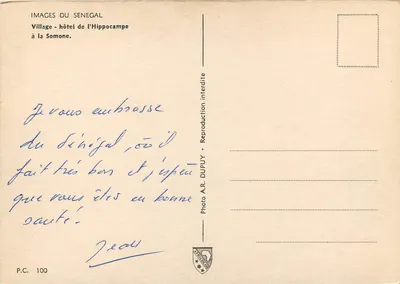 IMAGES DU SÉNÉGAL
Village - hôtel de l'Hippocampe
à la Somone.
Je vous embrasse
du Sénégal, où il
fait très bon et j'espère
que vous êtes en bonne
santé.
Jean
Photo A.R. DUPUY - Reproduction interdite
P.C. 100